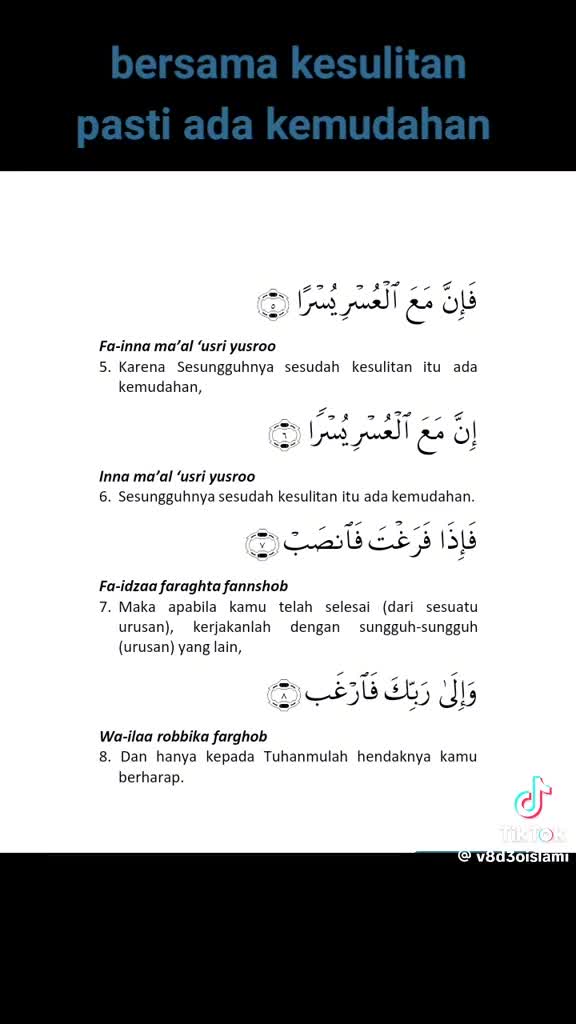 bersama kesulitan
pasti ada kemudahan
فَإِنَّ مَعَ ٱلْعُسْرِ يُسْرًا ۝٥
Fa-inna ma’al ‘usri yusroo
5. Karena Sesungguhnya sesudah kesulitan itu ada
kemudahan,
إِنَّ مَعَ ٱلْعُسْرِ يُسْرًا ۝٦
Inna ma’al ‘usri yusroo
6. Sesungguhnya sesudah kesulitan itu ada kemudahan.
فَإِذَا فَرَغْتَ فَٱنصَبْ ۝٧
Fa-idzaa faraghta fannshob
7. Maka apabila kamu telah selesai (dari sesuatu
urusan), kerjakanlah dengan sungguh-sungguh
(urusan) yang lain,
وَإِلَىٰ رَبِّكَ فَٱرْغَب ۝٨
Wa-ilaa robbika farghob
8. Dan hanya kepada Tuhanmulah hendaknya kamu
berharap.
TikTok
@ v8d3oislami